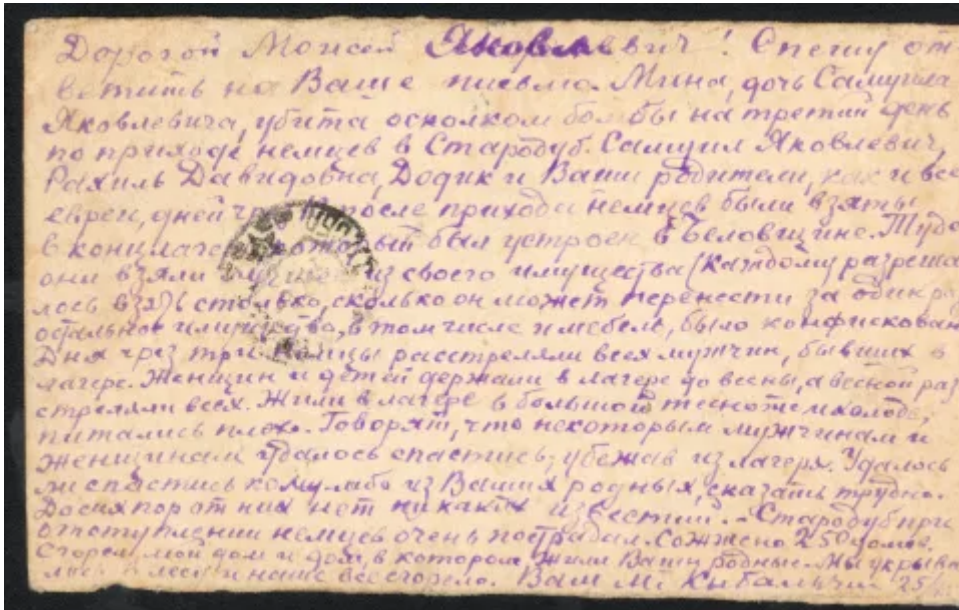 Дорогой Моисей Яковлевич! Спешу от-
ветить на Ваше письмо. Мина, дочь Самуила
Яковлевича, убита осколком бомбы на третий день
по приходе немцев в Стародуб. Самуил Яковлевич,
Рахиль Давидовна, Додик и Ваши родители, как и все
евреи, дней после прихода немцев были взяты
в концлагерь, который был устроен в Беловщине. Туда
они взяли из своего имущества (каждому разреша
лось взять столько, сколько он может перенести за один раз
остальное имущество, в том числе и мебель, было конфискован
Дня чрез три немцы расстреляли всех мужчин, бывших в
лагере. Женщин и детей держали в лагере до весны, а весной рас
стреляли всех. Жили в лагере в большой тесноте и холоде,
питались плохо. Говорят, что некоторым мужчинам и
женщинам удалось спастись, убежав из лагеря. Удалось
ли спастись кому-либо из Ваших родных, сказать трудно.
До сих пор от них нет никаких известий. - Стародуб при
отступлении немцев очень пострадал. Сожжено 250 домов.
Сгорел мой дом и дом, в котором жили Ваши родные. Мы укрыва
лись в лесу и наше все сгорело. Ваш М. Кибальчич 25